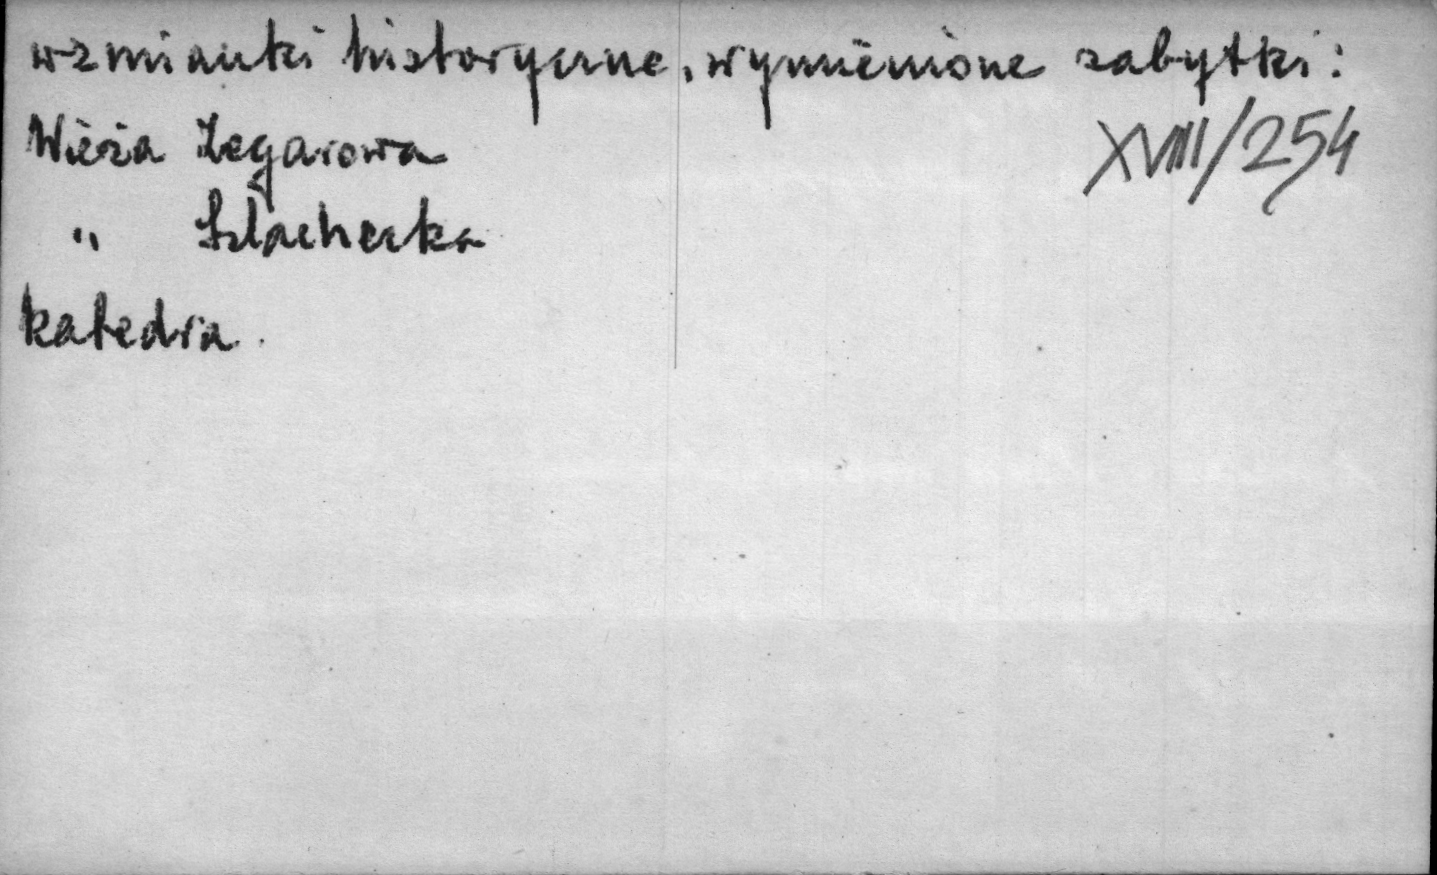 wzmianki historyczne, wymienione zabytki:
Wieża Zegarowa
XVIII/254
" Szlachecka
katedra.